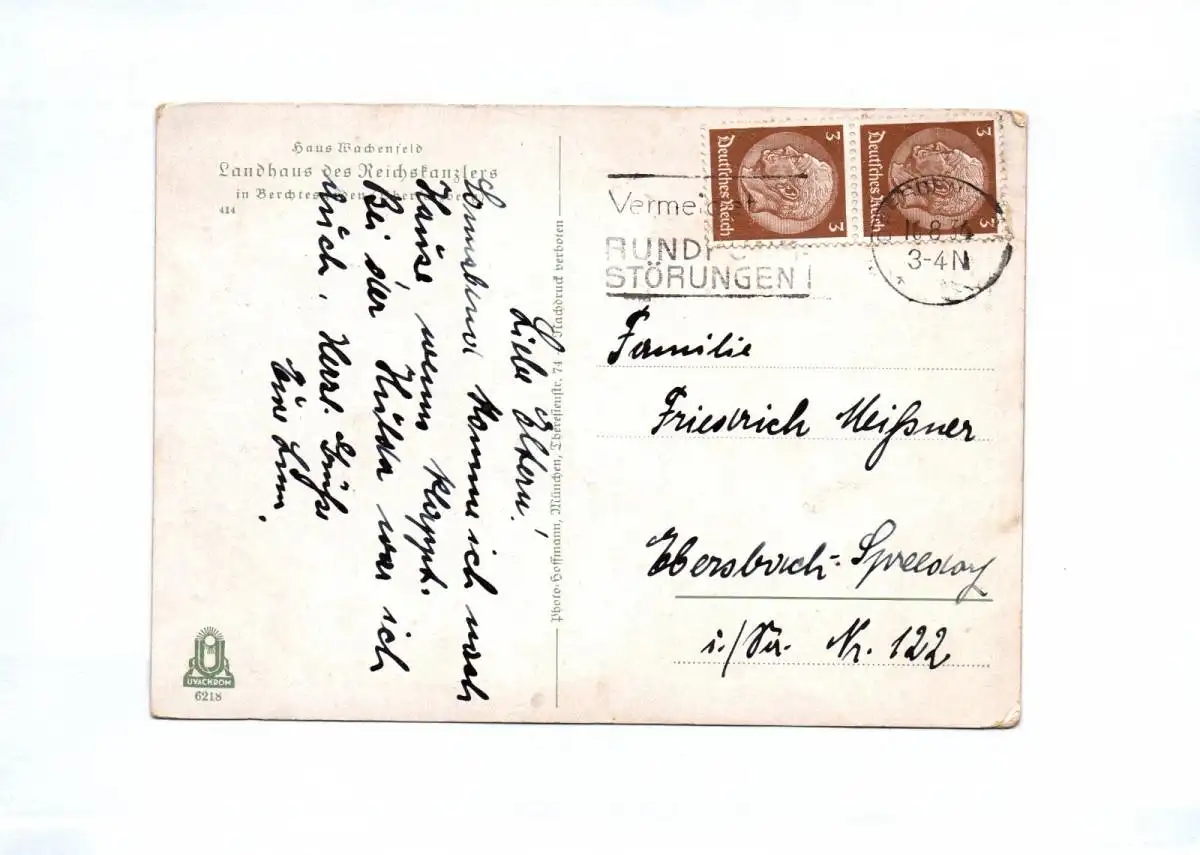 Haus Wachenfeld
Landhaus des Reichskanzlers
in Berchtesgaden
414
Liebe Eltern!
Sonnabend komme ich nach
Hause, wenn klappt.
Bei der Hulda war ich
auch. Herzl. Grüße
Eure
Photo-Hoffmann, München, Theresienstr. 74 – Nachdruck verboten
UVACHROM
6218
Deutsches Reich
3
3
Deutsches Reich
3
3
Vermeidet
RUNDFUNK-
STÖRUNGEN!
16.8.
3-4N
Familie
Friedrich Meißner
Ebersbach-Spreedorf
i./Sa. Nr. 122